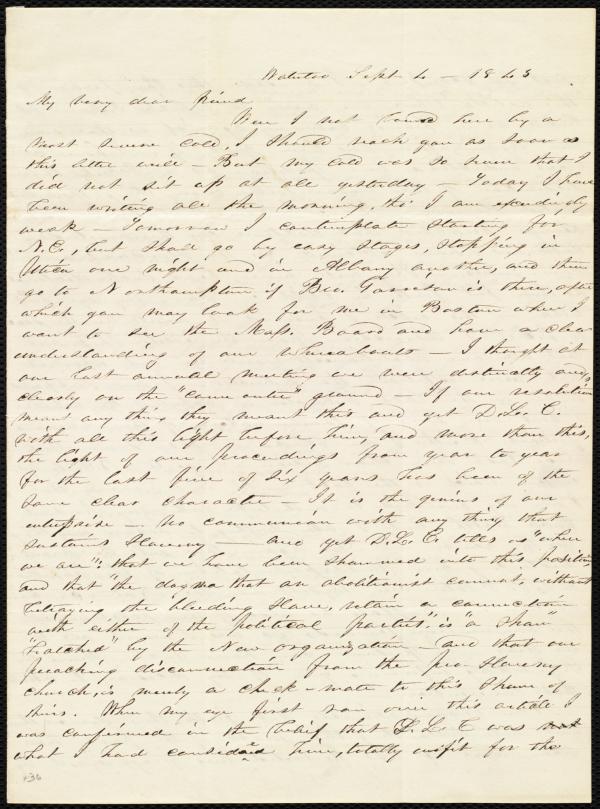 Waterloo Sept 4 - 1843
My very dear friend
Were I not bound here by a
most severe cold, I should reach you as soon as
this letter will - But my cold was so severe that I
did not sit up at all yesterday - Today I have
been writing all the morning, tho' I am exceedingly
weak - Tomorrow I contemplate starting for
N.E., but shall go by easy stages, stopping in
Utica one night and in Albany another, and then
go to Northampton if Bro. Garrison is there, after
which you may look for me in Boston where I
want to see the Mass. Board and have a clear
understanding of our whereabouts - I thought at
our last annual meeting we were distinctly and
clearly on the "come outer" ground - If our resolutions
meant any thing they meant this and yet D. L. C.
with all this light before him, and more than this,
the light of our proceedings from year to year
for the last five or six years has been of the
same clear character - It is the genius of our
enterprise - no communion with any thing that
sustains slavery - and yet D. L. C. tells us "where
we are": that we have been shammed into this position
and that "the dogma that an abolitionist cannot, without
betraying the bleeding slave, retain a connection
with either of the political parties," is "a sham"
"hatched" by the New organization - and that our
preaching disconnection from the pro-slavery
church, is merely a check-mate to this sham of
theirs. When my eye first ran over this article I
was confirmed in the belief that D. L. C was not
what I had considered him, totally unfit for the